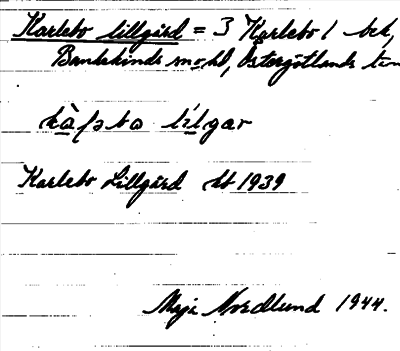 Karlebo lillgård = 3 Karlebo 1 bek,
Bankekinds sn o hd, Östergötlands
lílgar
Karlebo Lillgård 1939
Maja Nordlund 1944.